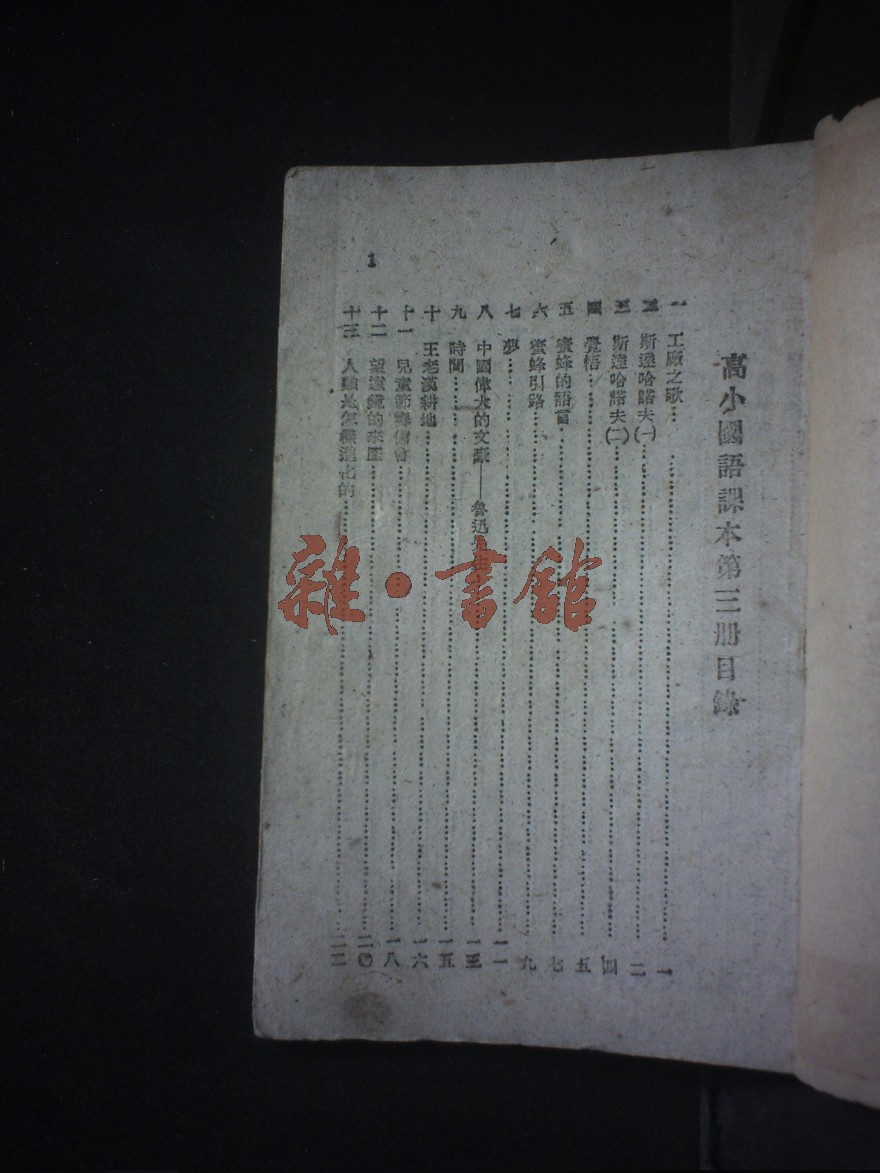 高小國語課本第三册目錄
一 工廠之歌……一
二 斯達哈諾夫(一)……二
三 斯達哈諾夫(二)……四
四 覺悟……五
五 蜜蜂的語言……七
六 蜜蜂引路……九
七 夢……一一
八 中國偉大的文豪——魯迅先生……一三
九 時間……一五
十 王老漢耕地……一六
十一 兒童節……會……一八
十二 望遠鏡的來歷……二〇
十三 人類是怎樣進化的……二二
1
雜·書館